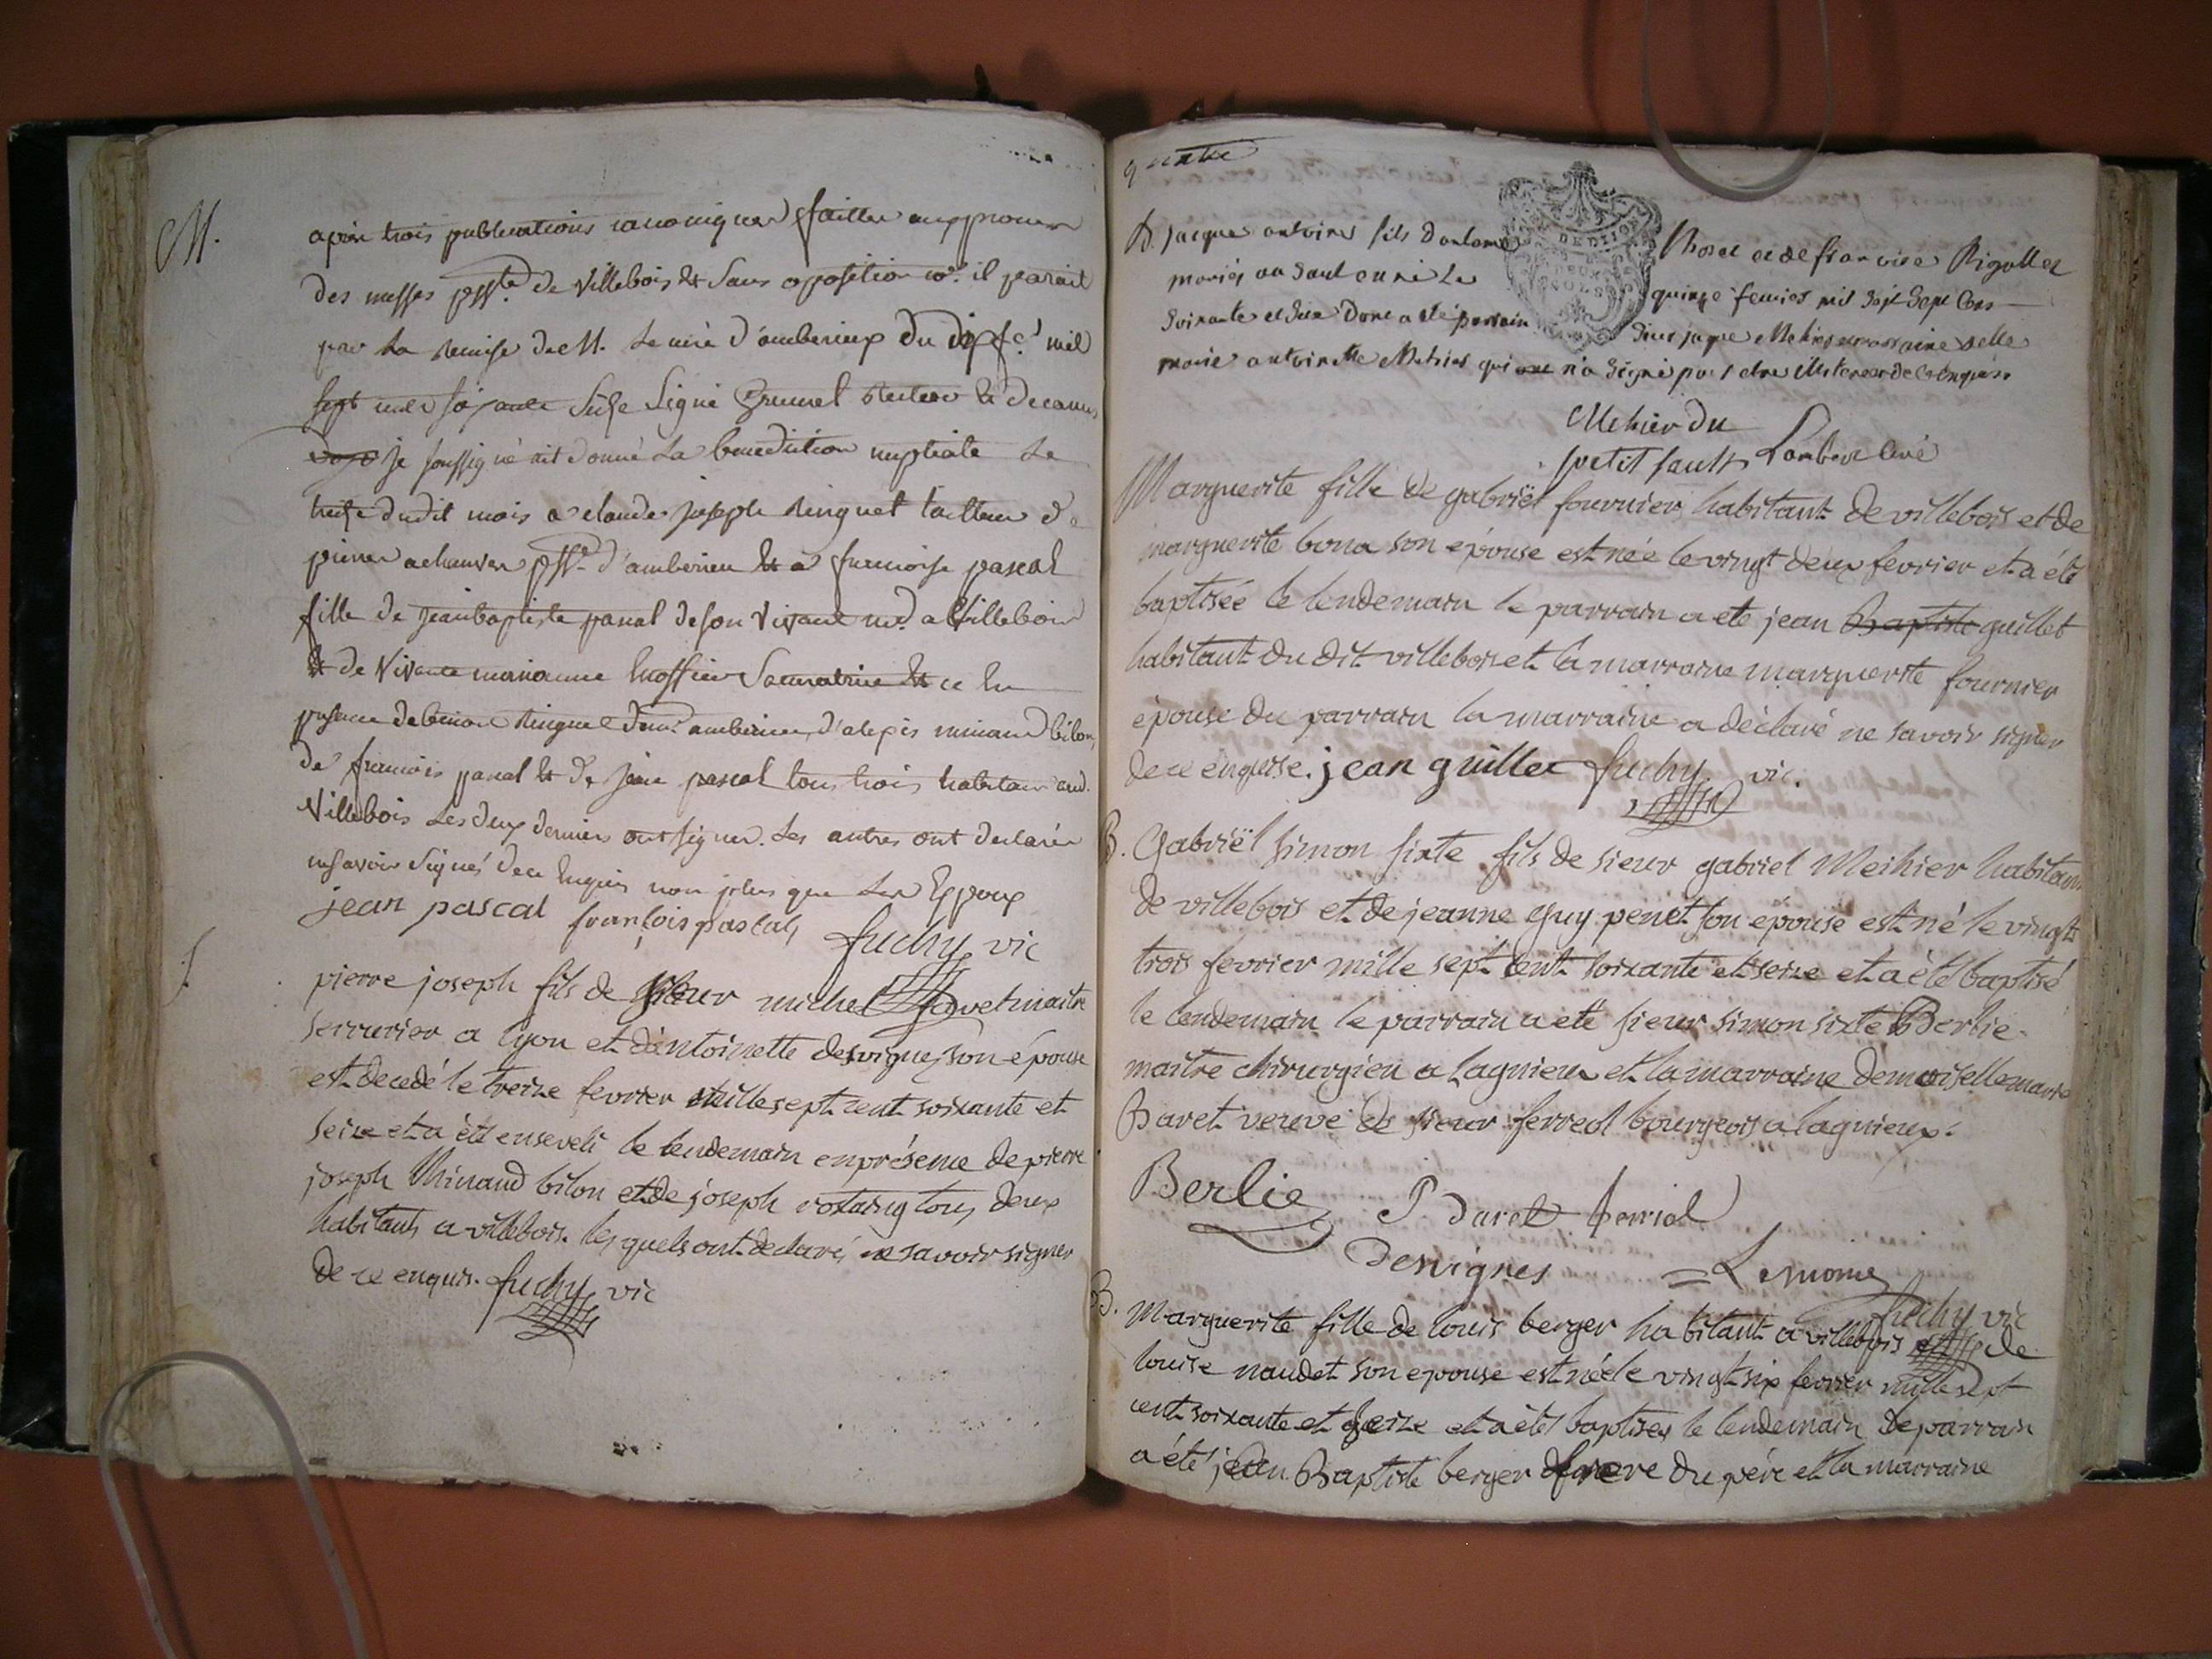 M.
après trois publications canoniques faittes aux prones
des messes pssles de Villebois & sans oposition co.e il parait
par la remise de M. le curé d'amberieux du dix fe. mil
sept cent soixante seize signé Brunet recteur &
je soussigné ait donné la benediction nuptiale le
treize dudit mois a claude joseph ringuet tailleur de
pierres psse d'amberieu & a francoise pascal
fille de jean baptiste pascal de son vivant md. a Villebois
& de vivante marianne & ce en
presence de ringuet
de francois pascal & de jean pascal tous trois habitans aud.
Villebois les deux derniers ont signer. les autres ont declarés
ne savoir signés de ce enquis non plus que les Epoux
jean pascal françois pascal
fuchy vic
pierre joseph fils de sieur michel maitre
serrurier a lyon et d'entoinette desvignes son épouse
est decedé le treize fevrier mille sept cent soixante et
seize et a été enseveli le lendemain en présence de pierre
joseph Minaud bilon et de joseph rostaing tous deux
habitants a villebois. les quels ont declarés ne savoir signer
de ce enquis. fuchy vic
quatre
B. jacque antoine fils d'antoine et de francoise Rigollet
mariés quinze fevrier mil sept cens
soixante et seize a ete parrain sieur jaque Mehier et marraine delle
marie antoinette Mehier qui n'a signé pas de ce enquise
DEUX SOLS
Mehier du
petit sault Lombard curé
Marguerite fille de gabriël fournier habitant de villebois et de
marguerite bona son épouse est née le vingt deux fevrier et a été
baptisée le lendemain le parrain a eté jean Baptiste guillet
habitant du dit villebois et la marraine marguerite fournier
épouse du parrain la marraine a déclaré ne savoir signer
de ce enquise. jean guillet fuchy vic.
B. Gabriël simon sixte fils de sieur gabriel Meihier habitant
de villebois et de jeanne guy penet son épouse est né le vingt
trois fevrier mille sept cent soixante et seize et a été baptisé
le lendemain le parrain a eté sieur simon sixte Berlie
maitre chirurgien a Lagnieux et la marraine demoiselle marie
Baret veuve de sieur ferreol bourgeois a lagnieux.
Berlie Baret ferriol
Desvignes = Lemoine
fuchy vic
B. Marguerite fille de louis berger habitant a villebois et de
louise naudet son epouse est née le vingt six fevrier mille sept
cent soixante et seize et a été baptisée le lendemain le parrain
a été jean Baptiste berger frere du père et la marraine